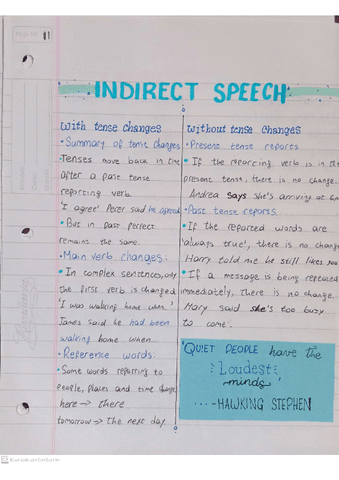 11
INDIRECT SPEECH
With tense changes
• Summary of tense changes
• Tenses move back in time
after a past tense
reporting verb.
'I agree' Peter said he agreed
• But in past perfect
remains the same.
• Main verb changes:
• In complex sentences, only
the first verb is changed
'I was walking home when'
James said he had been
walking home when...
• Reference words:
• Some words referring to
people, places and time change
here → there
tomorrow → the next day
without tense changes
• Present tense reports
• If the reporting verb is in the
present tense, there is no change.
Andrea says she's arriving at
• Past tense reports.
• If the reported words are
'always true', there is no change
Harry told me he still likes you
• If a message is being repeated
immediately, there is no change.
Mary said she's too busy
to come.
'QUIET PEOPLE have the
Loudest
minds'
---- HAWKING STEPHEN